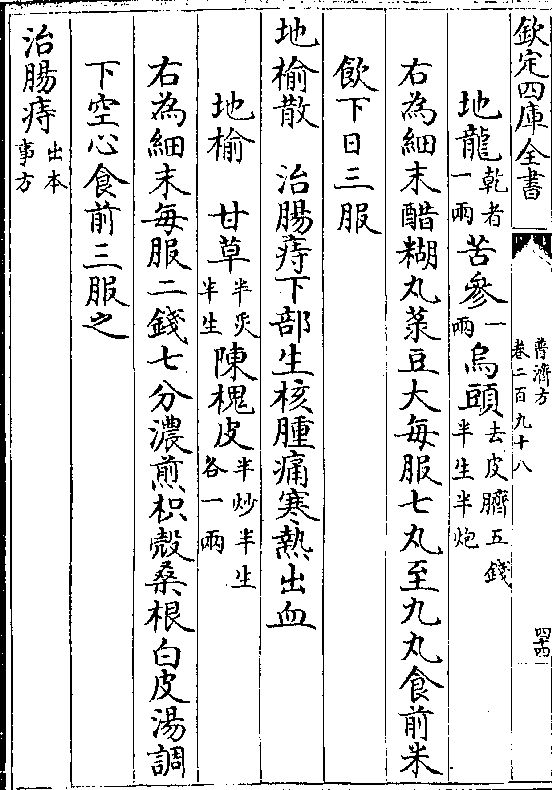 欽定四庫全書
普濟方
卷二百九十八
四十四
地龍乾者一兩 苦參一兩 烏頭去皮臍五錢半生半炮
右為細末醋糊丸菉豆大每服七丸至九丸食前米
飲下日三服
地榆散 治腸痔下部生核腫痛寒熱出血
地榆 甘草半炙半生 陳槐皮半炒半生各一兩
右為細末每服二錢七分濃煎枳殼桑根白皮湯調
下空心食前三服之
治腸痔出本事方